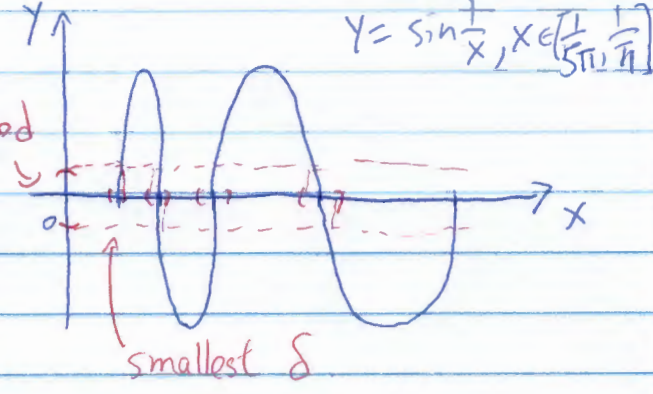 Y
Y = sin 1/x, x ∈ [1/5π, 1/π]
0
X
smallest δ